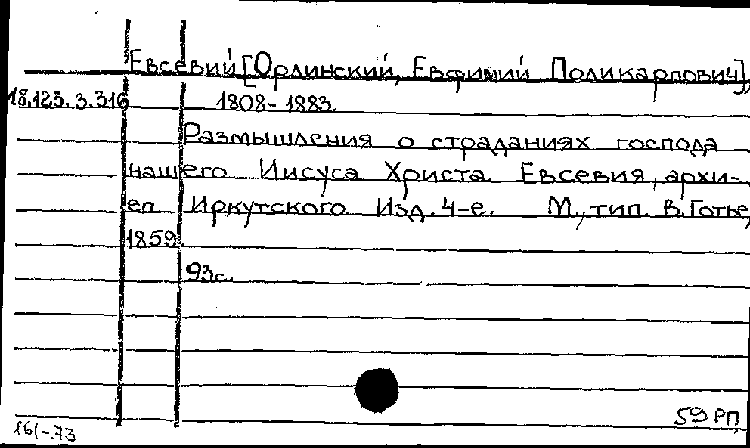 Евсевий [Орлинский, Евфимий Поликарпович],
18.123.3.316 1808-1883
Размышления о страданиях господа
нашего Иисуса Христа Евсевия, архи-
еп Иркутского Изд. 4-е. М., тип. В. Готье,
1859.
93с.
59 РП
161-73